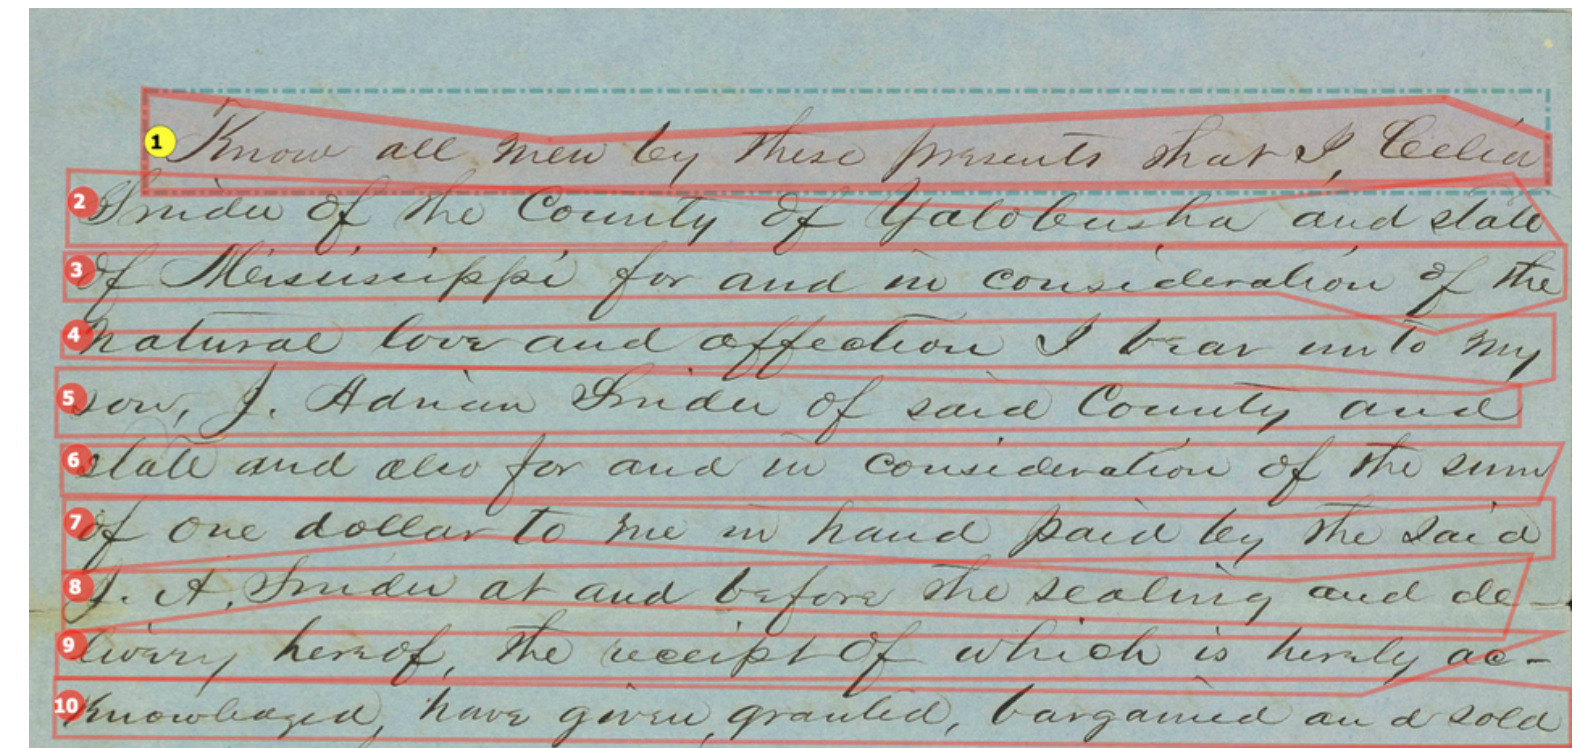 Know all men by these presents that I, Celia
Snider of the County of Yalobusha and state
of Mississippi for and in consideration of the
natural love and affection I bear unto my
son, J. Adrian Snider of said County and
state and also for and in consideration of the sum
of one dollar to me in hand paid by the said
J. A. Snider at and before the sealing and de-
livery hereof, the receipt of which is hereby ac-
knowledged, have given, granted, bargained and sold